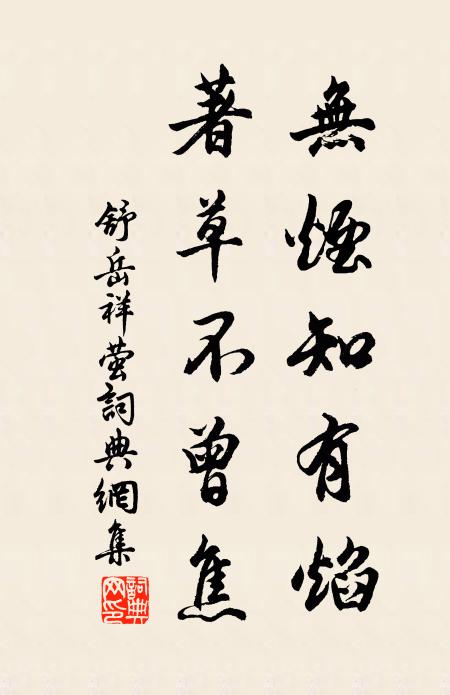 無煙知有焰
著草不曾焦
舒岳祥萤詞典網集
詞典网印